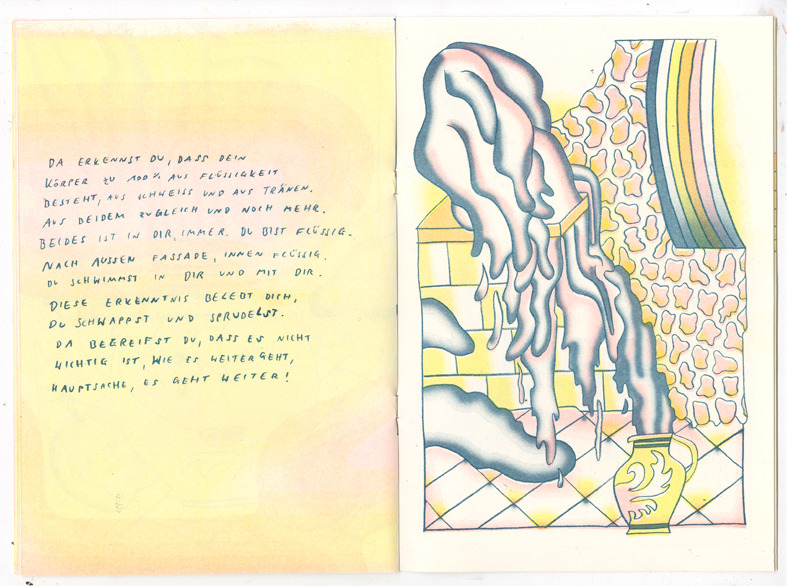 DA ERKENNST DU, DASS DEIN
KÖRPER ZU 100% AUS FLÜSSIGKEIT
BESTEHT, AUS SCHWEISS UND AUS TRÄNEN.
AUS BEIDEM ZUGLEICH UND NOCH MEHR.
BEIDES IST IN DIR, IMMER. DU BIST FLÜSSIG.
NACH AUSSEN FASSADE, INNEN FLÜSSIG.
DU SCHWIMMST IN DIR UND MIT DIR.
DIESE ERKENNTNIS BELEBT DICH,
DU SCHWAPPST UND SPRUDELST.
DA BEGREIFST DU, DASS ES NICHT
WICHTIG IST, WIE ES WEITERGEHT,
HAUPTSACHE, ES GEHT WEITER!